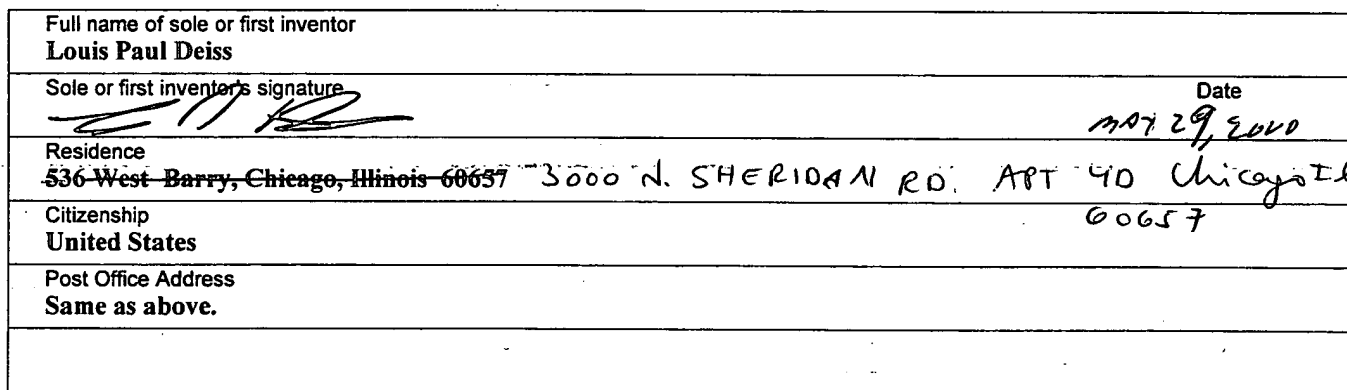 Full name of sole or first inventor
Louis Paul Deiss
Sole or first inventor's signature Date
MAY 29, 2000
Residence
536 West Barry, Chicago, Illinois 60657 3000 N. SHERIDAN RD. APT 4D Chicago IL
60657
Citizenship
United States
Post Office Address
Same as above.